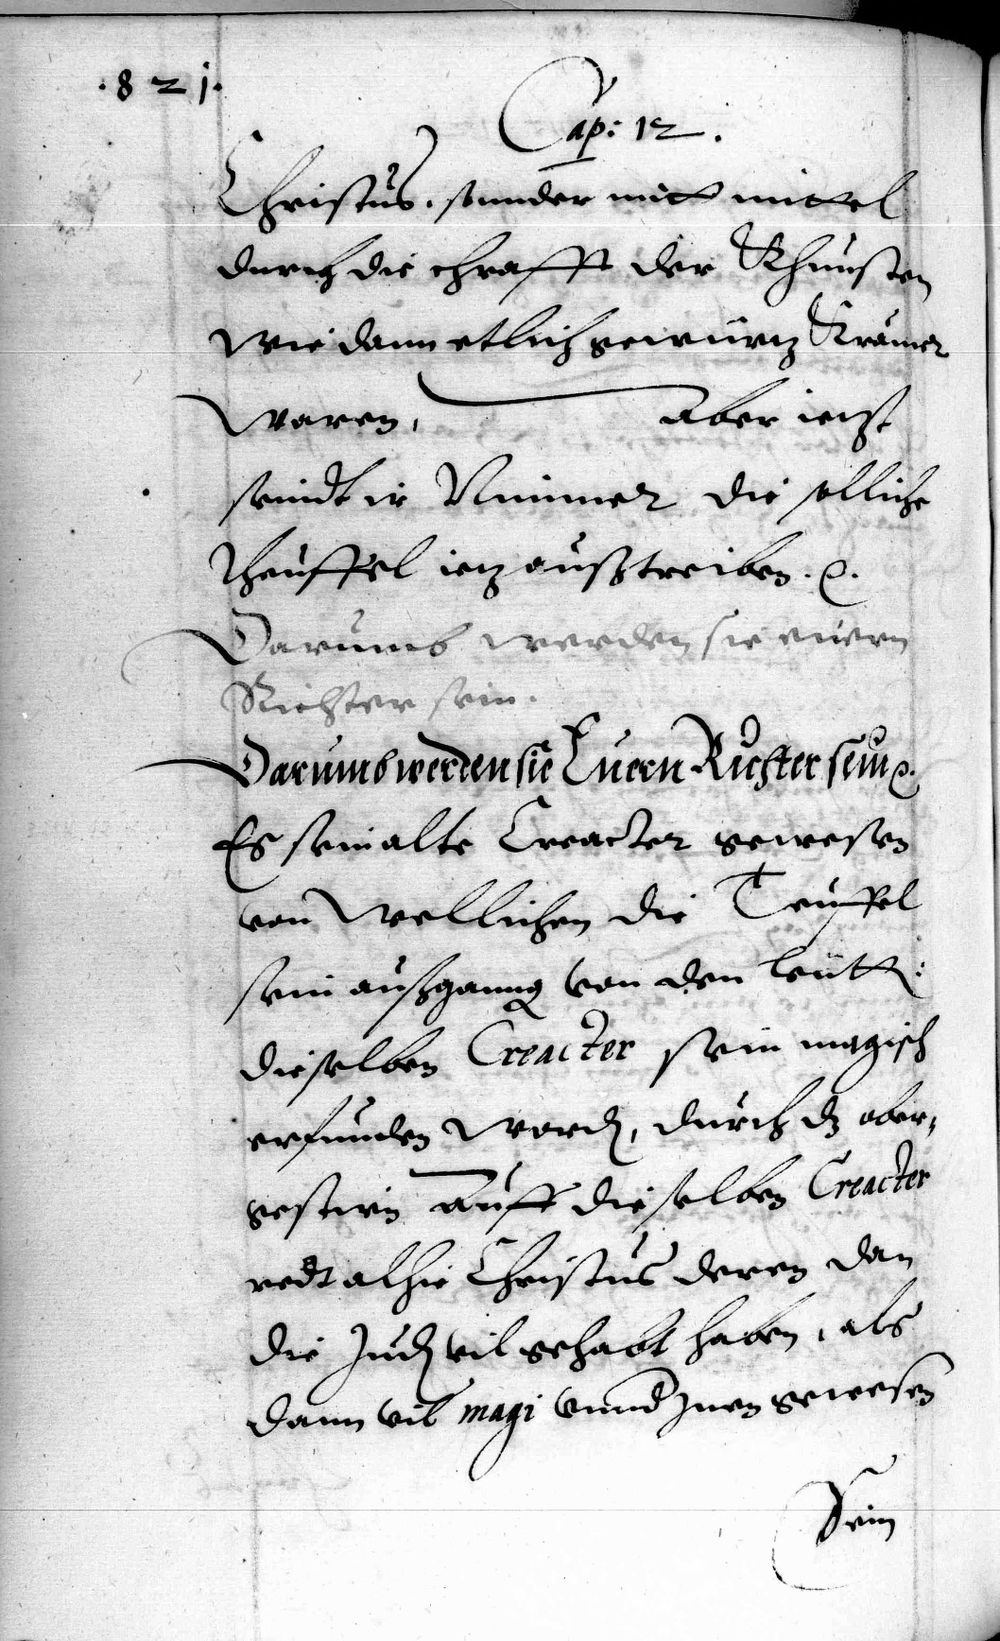 .821.
Cap: 12.
Christus. sounder mitt mittel
durch die chrafft der Khunsten
wie dann etlich gewürtz Krämer
waren, Aber ietzt
seindt ir Nimmer die solliche
Theuffel ietz außtreiben. &.
Darumb werden sie euern
Richter sein.
Darumb werden sie Euern Richter sein &.
Es sein alte Creacter gewesen
von wellichen die Teuffel
sein außganng von den leütt:
dieselben Creacter sein magisch
erfunden word, durch dz ober,
gestirn Auff dieselben Creacter
redt alhie Christus deren dan
die Jud vil gehabt haben, als
dann vil magi vnnd Jnen gewesen
Sein